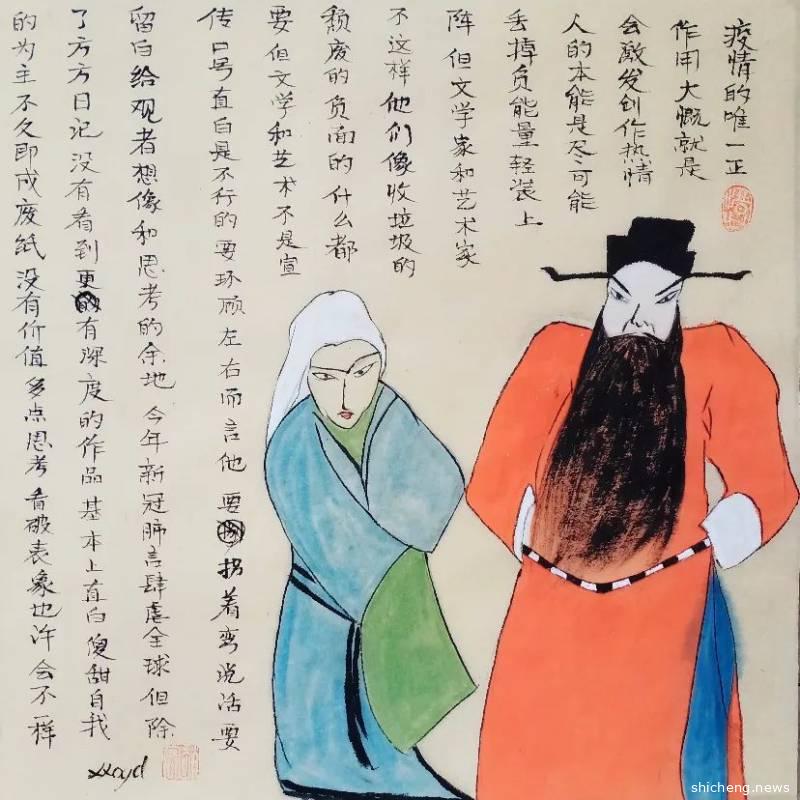 疫情的唯一正
作用大慨就是
会激发创作热情
人的本能是尽可能
丢掉负能量轻装上
阵但文学家和艺术家
不这样他们像收垃圾的
颓废的负面的什么都
要但文学和艺术不是宣
传口号直白是不行的要环顾左右而言他要拐着弯说话要
留白给观者想像和思考的余地今年新冠肺言肆虐全球但除
了方方日记没有看到更有深度的作品基本上直白傻甜自我
的为主不久即成废纸没有价值多点思考看破表象也许会不一样
shicheng.news